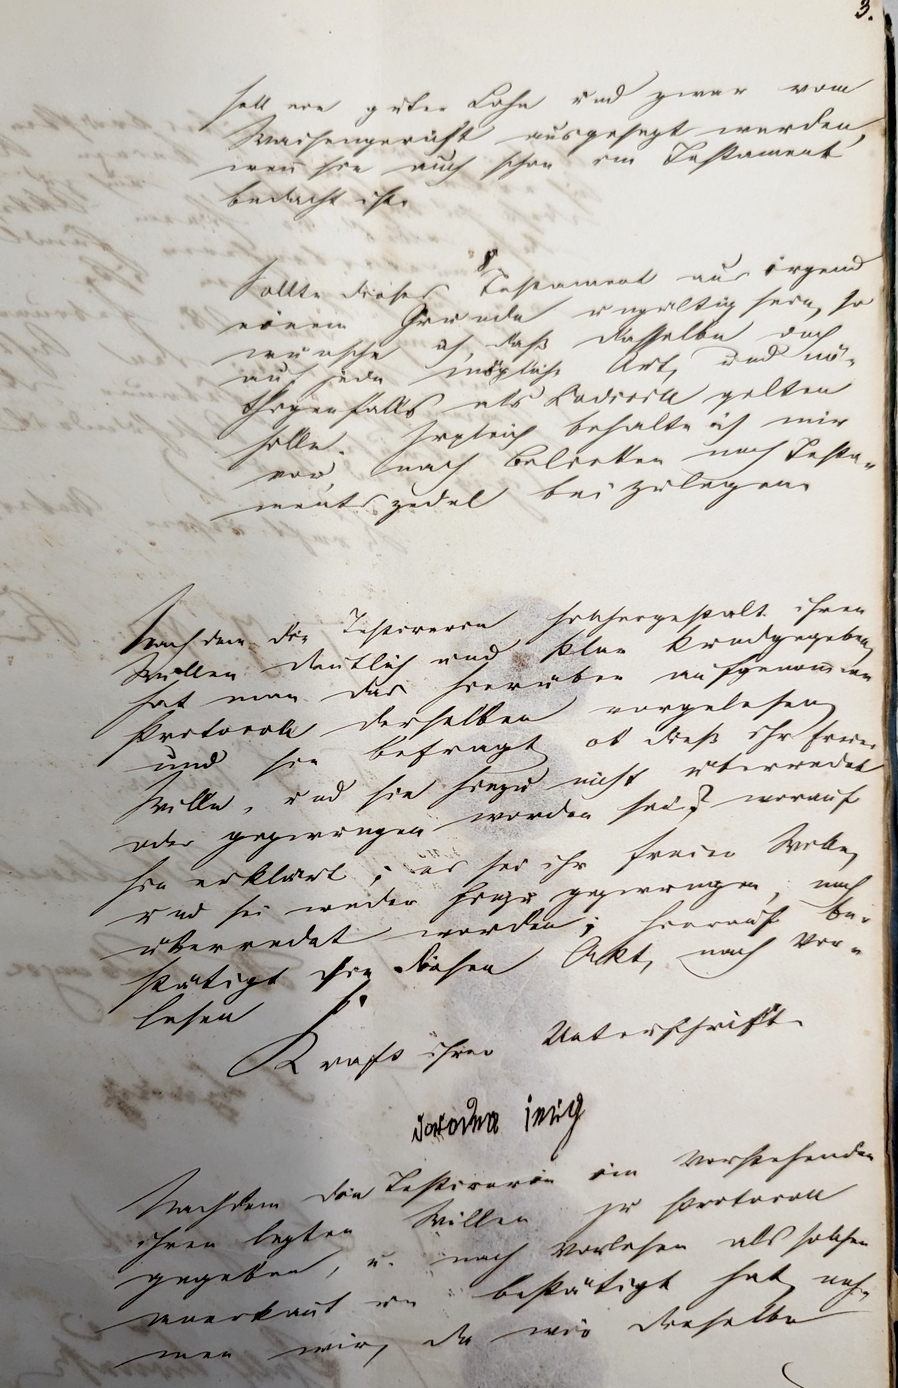 3.
soll ein guter Lohn und zwar vom
Waisengericht ausgesezt werden,
wenn sie auch schon im Testament
bedacht ist.
8
Sollte dieses Testament aus irgend
einem Grunde ungültig sein, so
wünsche ich, daß dasselbe doch
auf jede mögliche Art, und nö-
thigenfalls als Kodicill gelten
solle. Zugleich behalte ich mir
vor, nach Belieben noch Testa-
mentszedel beizulegen.
Nachdem die Testirerin solchergestalt ihren
Willen deutlich und klar kundgegeben,
hat man das hierüber aufgenommene
Protocoll derselben vorgelesen,
und sie befragt, ob dieß ihr freier
Wille, und sie hiezu nicht überredet
oder gezwungen worden sei? worauf
sie erklärt; es sei ihr freier Wille,
und sei weder hiezu gezwungen, noch
überredet worden; hierauf be-
stätigt sie diesen Akt, nach Vor-
lesen
Kraft ihrer Unterschrift.
Nachdem die Testirerin im Vorstehenden
ihren lezten Willen zu Protocoll
gegeben, u. nach Vorlesen als solchen
anerkant u. bestätigt hat, neh-
men wir, da wir dieselbe